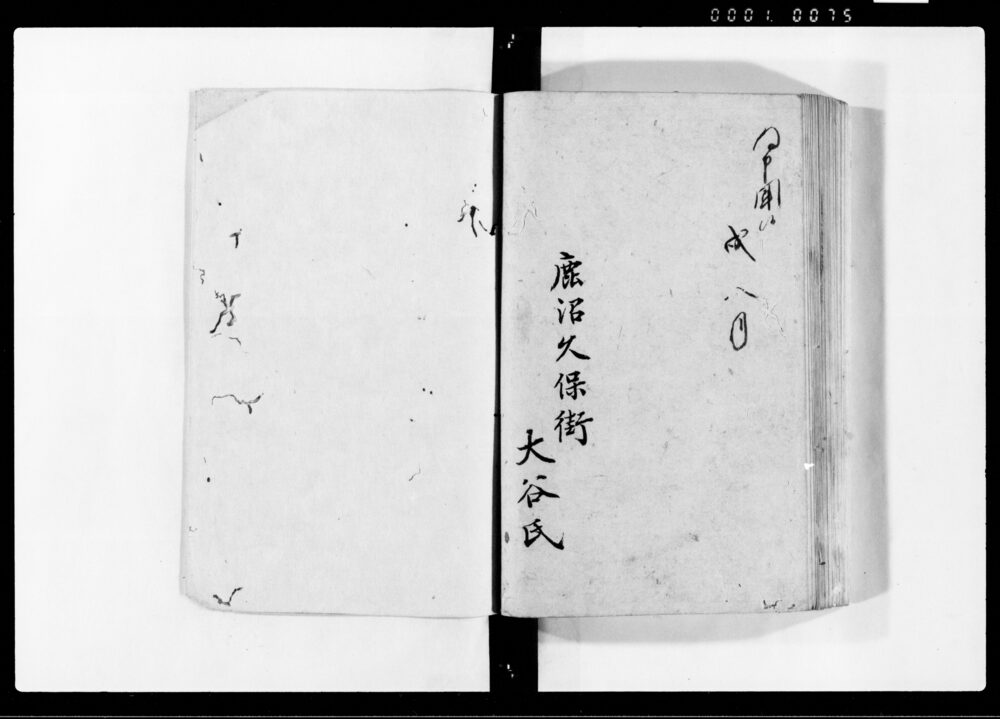 0001. 0075
戌
八月
鹿沼久保街
大谷氏